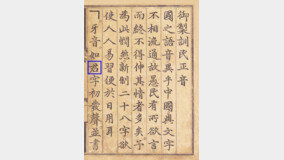 御製訓民正音
國之語音異乎中國與文字
不相流通故愚民有所欲言
而終不得伸其情者多矣予
為此憫然新制二十八字欲
使人人易習便於日用耳
ㄱ牙音如君字初發聲並書